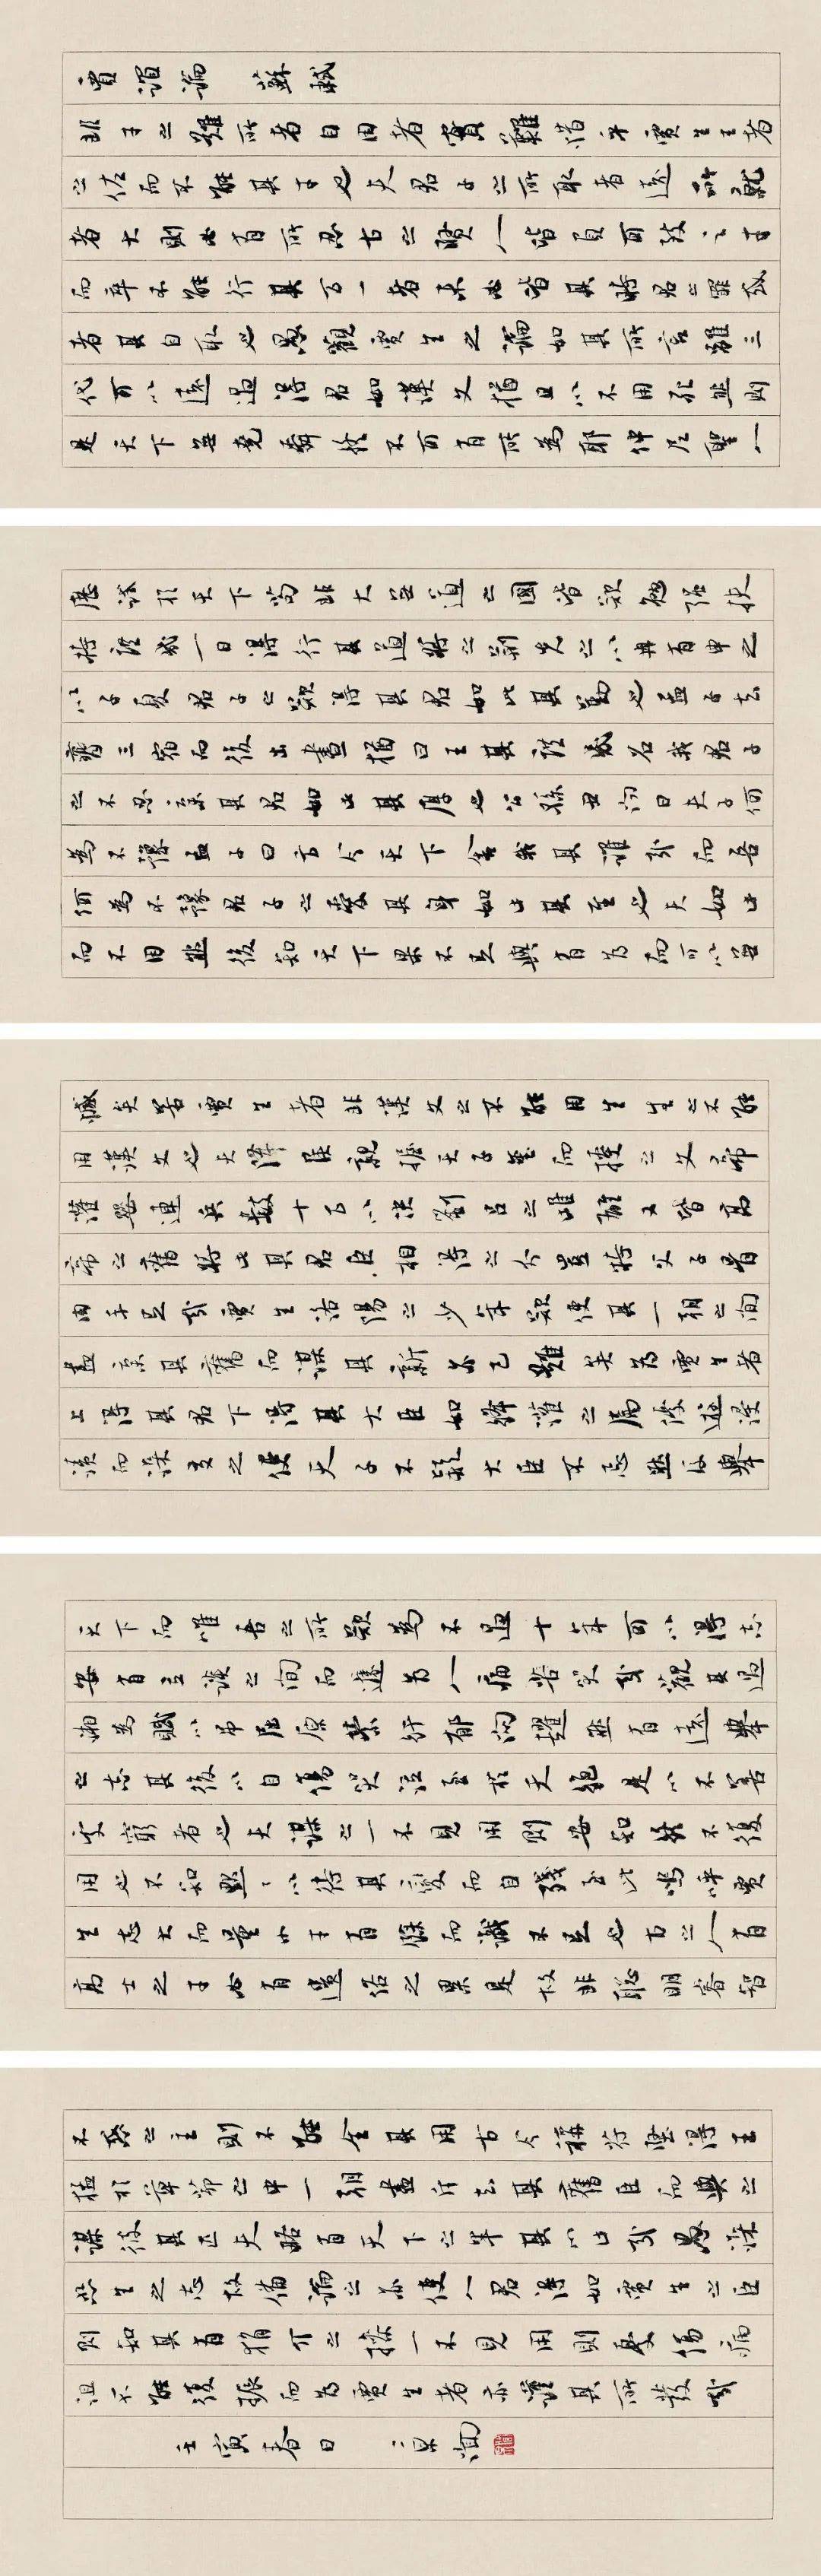 賈誼論 蘇軾
非才之難所以自用者實難惜乎賈生王者
之佐而不能其才也夫君子之所取者遠所就
者大則必有所忍古之賢人皆負可致之才
而卒不能行其万一者未必皆其時君之罪或
者其自取也愚觀賈生之論如其所言雖三
代何以遠過得君如漢文猶且以不用死然則
是天下無堯舜終不可有所為耶仲尼聖人
歷試於天下苟非大無道之國皆欲勉强扶
持庶幾一日得行其道將之荊先之以冉有申之
以子夏君子之欲得其君如此其勤也孟子去
齊三宿而後出晝猶曰王其庶幾召我君子
之不忍棄其君如此其厚也公孫丑問曰夫子何
為不豫孟子曰方今天下舍我其誰哉而吾
何為不豫君子之愛其身如此其至也夫如此
而不用然後知天下果不足與有為而可以無
憾矣若賈生者非漢文之不能用生生之不能
用漢文也夫絳侯親握天子璽而授之文帝
灌嬰連兵數十万以決劉呂之雌雄又皆高
帝之舊將此其君臣相得之分豈特父子骨
肉手足哉賈生洛陽之少年欲使其一朝之間
盡棄其舊而謀其新亦已難矣為賈生者
上得其君下得其大臣如絳灌之屬優游浸
漬而深交之使天子不疑大臣不忌然後舉
天下而唯吾之所欲為不過十年可以得志
安有立談之間而遽為人痛哭哉觀其過
湘為賦以弔屈原縈紆郁悶趯然有遠舉
之志其後以自傷哭泣至於夭絕是以不善
處窮者也夫謀之一不見用則安知終不復
用也不知默默以待其變而自殘至此嗚呼賈
生志大而量小才有餘而識不足也古之人有
高世之才必有遺俗之累是故非聰明睿智
不惑之主則不能全其用古今稱苻堅得王
猛於草茅之中一朝盡斥去其舊臣而與之
謀彼其匹夫略有天下之半其以此哉愚深
悲生之志故備論之亦使人君得如賈生之臣
則知其有狷介之操一不見用則憂傷病
沮不能復振而為賈生者亦謹其所發哉
壬寅春日